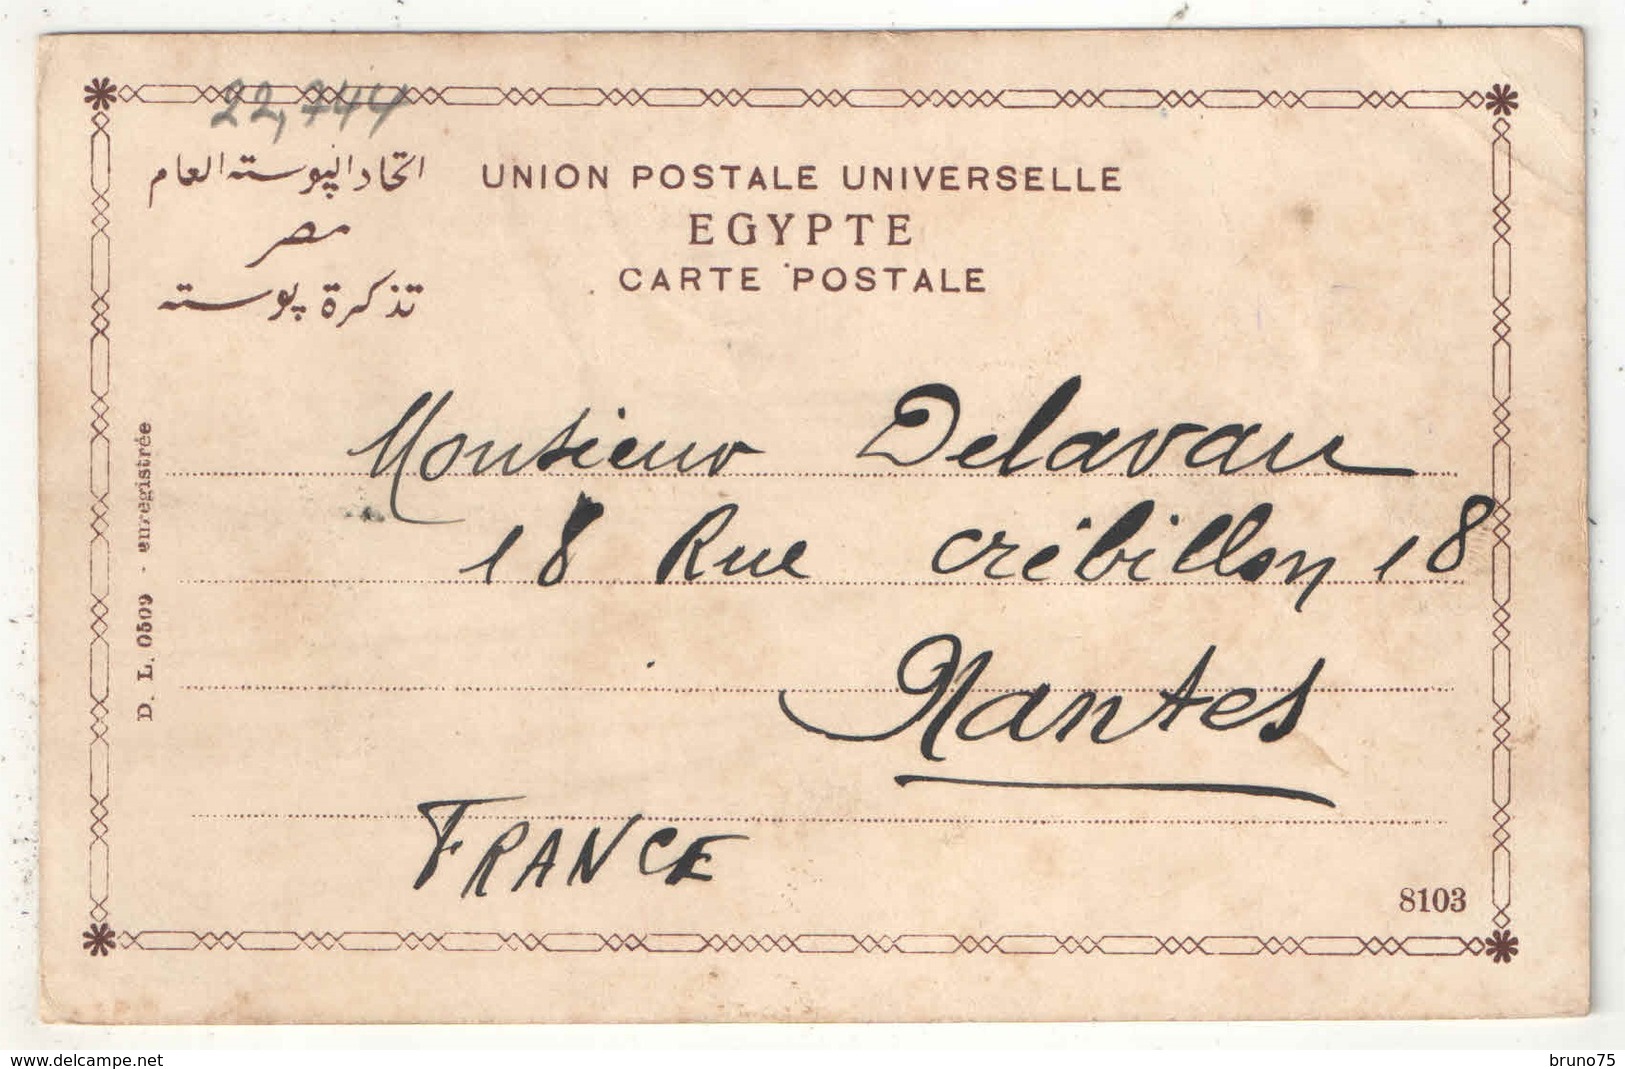 22,744
اتحاد الپوسته العام
UNION POSTALE UNIVERSELLE
مصر
EGYPTE
تذكرة پوسته
CARTE POSTALE
D. L. 0509 - enregistrée
Monsieur Delavau
18 Rue Crébillon 18
Nantes
FRANCE
8103
www.delcampe.net
bruno75